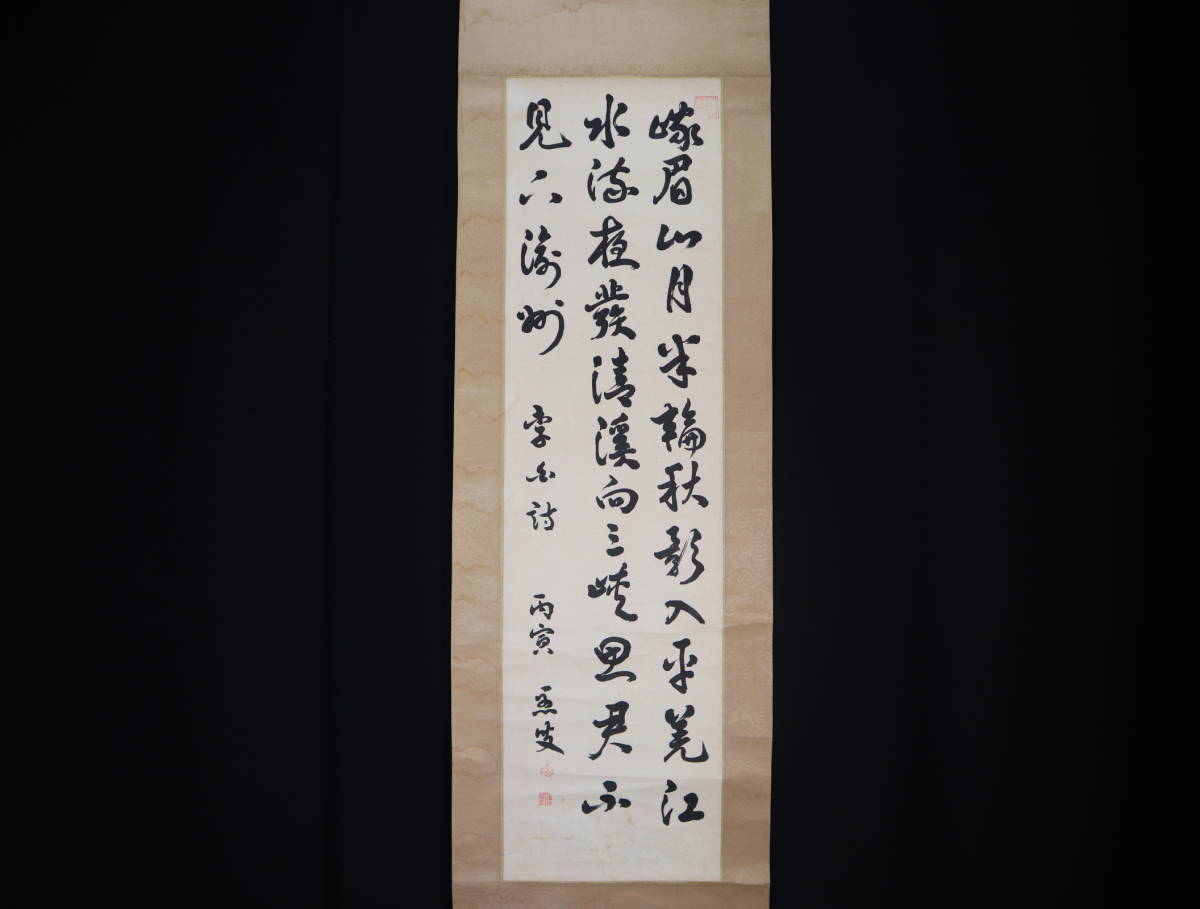 峨眉山月半輪秋影入平羌江
水流夜發清溪向三峽思君不
見下渝州 李白詩 丙寅